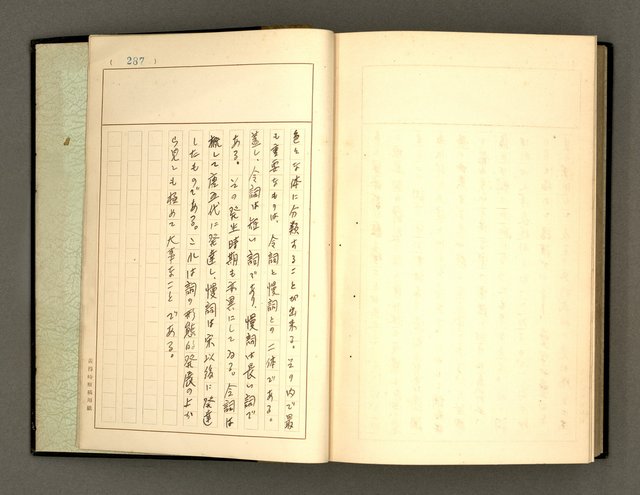 (287)
色々な体に分類することが出来る。その内で最
も重要なものは、令詞と慢詞との二体である。
蓋し、令詞は短い詞であり、慢詞は長い詞で
ある。その発生時期も亦異にしてゐる。令詞は
概して唐五代に発達し、慢詞は宋以後に発達
したものである。これは詞の形態的発展の上か
ら見ても極めて大事なことである。
黃得時原稿用紙